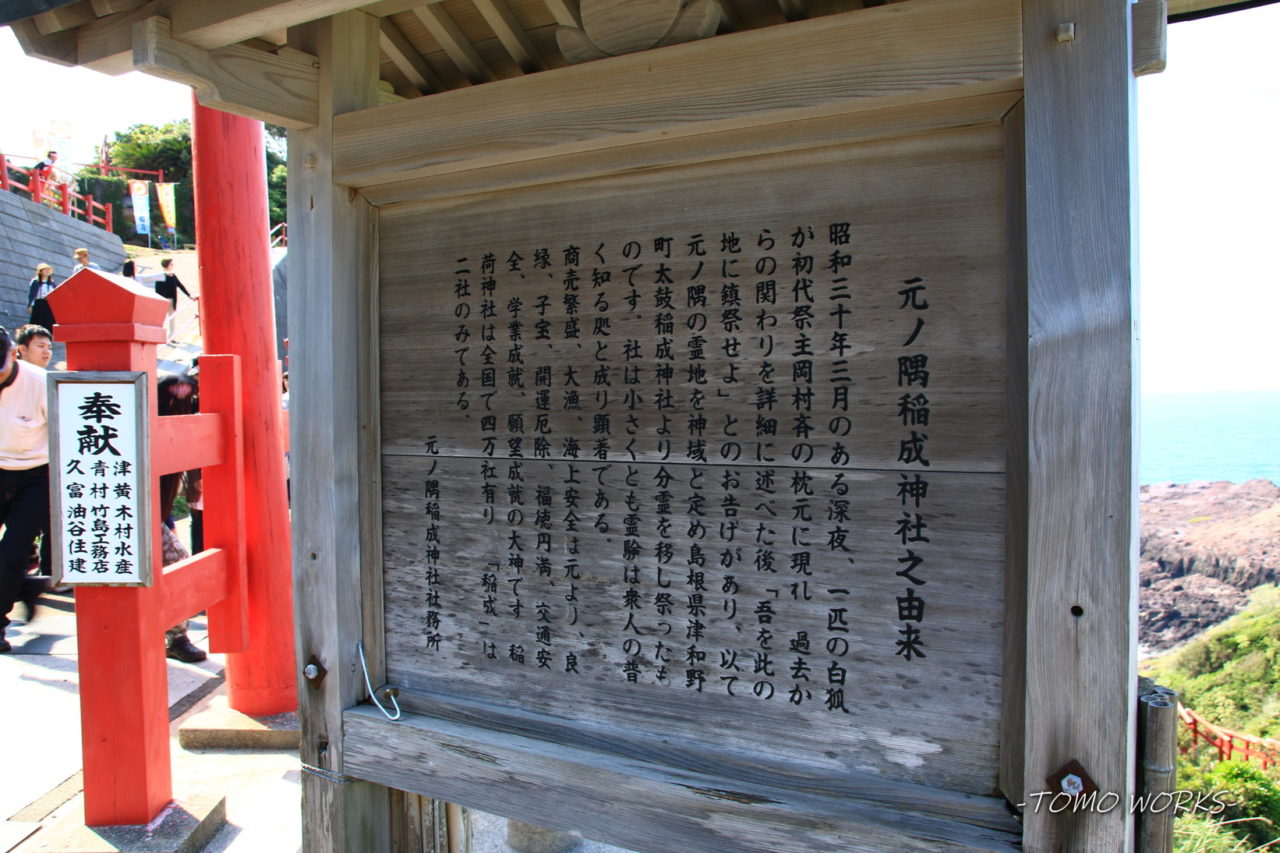 元ノ隅稲成神社之由来
昭和三十年三月のある深夜、一匹の白狐
が初代祭主岡村斉の枕元に現れ 過去か
らの関わりを詳細に述べた後「吾を此の
地に鎮祭せよ」とのお告げがあり、以て
元ノ隅の霊地を神域と定め島根県津和野
町太鼓稲成神社より分霊を移し祭ったも
のです。社は小さくとも霊験は衆人の普
く知る処と成り顕著である。
商売繁盛、大漁、海上安全は元より、良
縁、子宝、開運厄除、福徳円満、交通安
全、学業成就、願望成就の大神です 稲
荷神社は全国で四万社有り「稲成」は
二社のみである。
元ノ隅稲成神社社務所
奉献
津黄木村水産
青村竹島工務店
久富油谷住建
-TOMO WORKS-